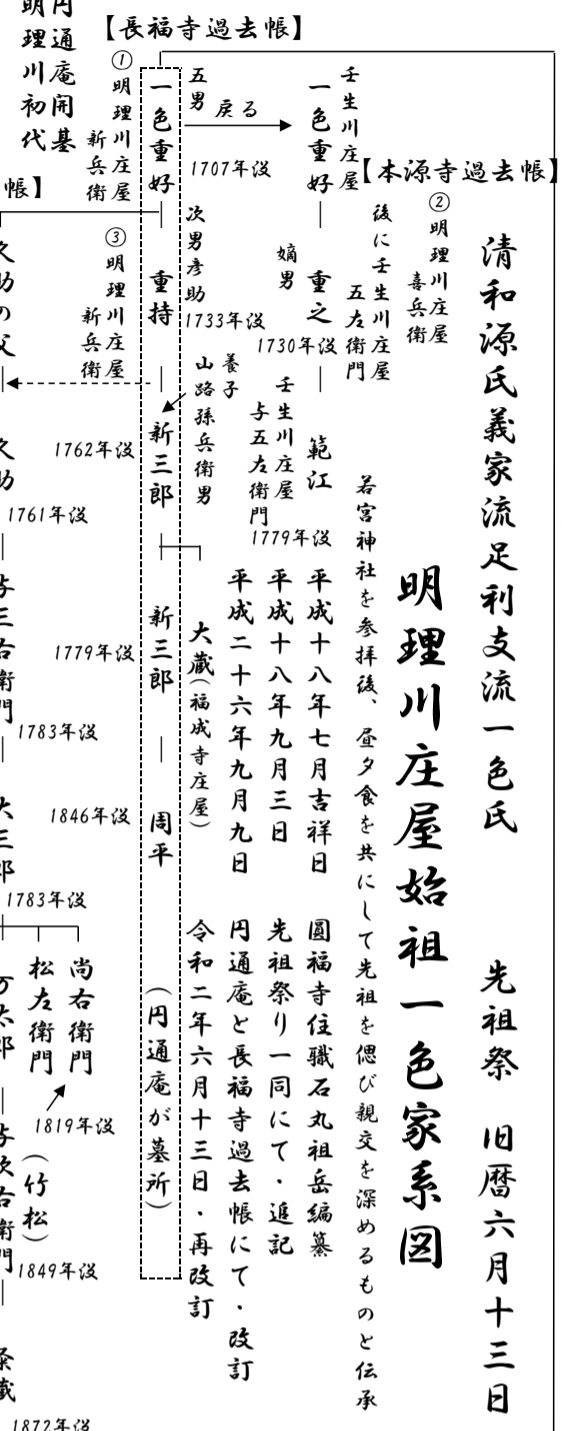 清和源氏義家流足利支流一色氏　先祖祭　旧暦六月十三日
明理川庄屋始祖一色家系図
若宮神社を参拝後、昼夕食を共にして先祖を偲び親交を深めるものと伝承
平成十八年七月吉祥日　圓福寺住職石丸祖岳編纂
平成十八年九月三日　先祖祭り一同にて・追記
平成二十六年九月九日　円通庵と長福寺過去帳にて・改訂
令和二年六月十三日・再改訂
【本源寺過去帳】
②明理川庄屋
喜兵衛
後に壬生川庄屋
五左衛門
壬生川庄屋
一色重好
嫡男
重之
1730年没
壬生川庄屋
与五左衛門
範江
1779年没
【長福寺過去帳】
戻る
五男
1707年没
一色重好
①明理川庄屋
新兵衛
次男彦助
1733年没
重持
③明理川庄屋
新兵衛
養子
山路孫兵衛男
新三郎
1762年没
大蔵(福成寺庄屋)
新三郎
1779年没
周平
1846年没
(円通庵が墓所)
円通庵開基
明理川初代
帳】
久助の父
久助
1761年没
与三右衛門
1783年没
大三郎
1783年没
尚右衛門
松左衛門
1819年没
(竹松)
万太郎
与次右衛門
1849年没
1872年没